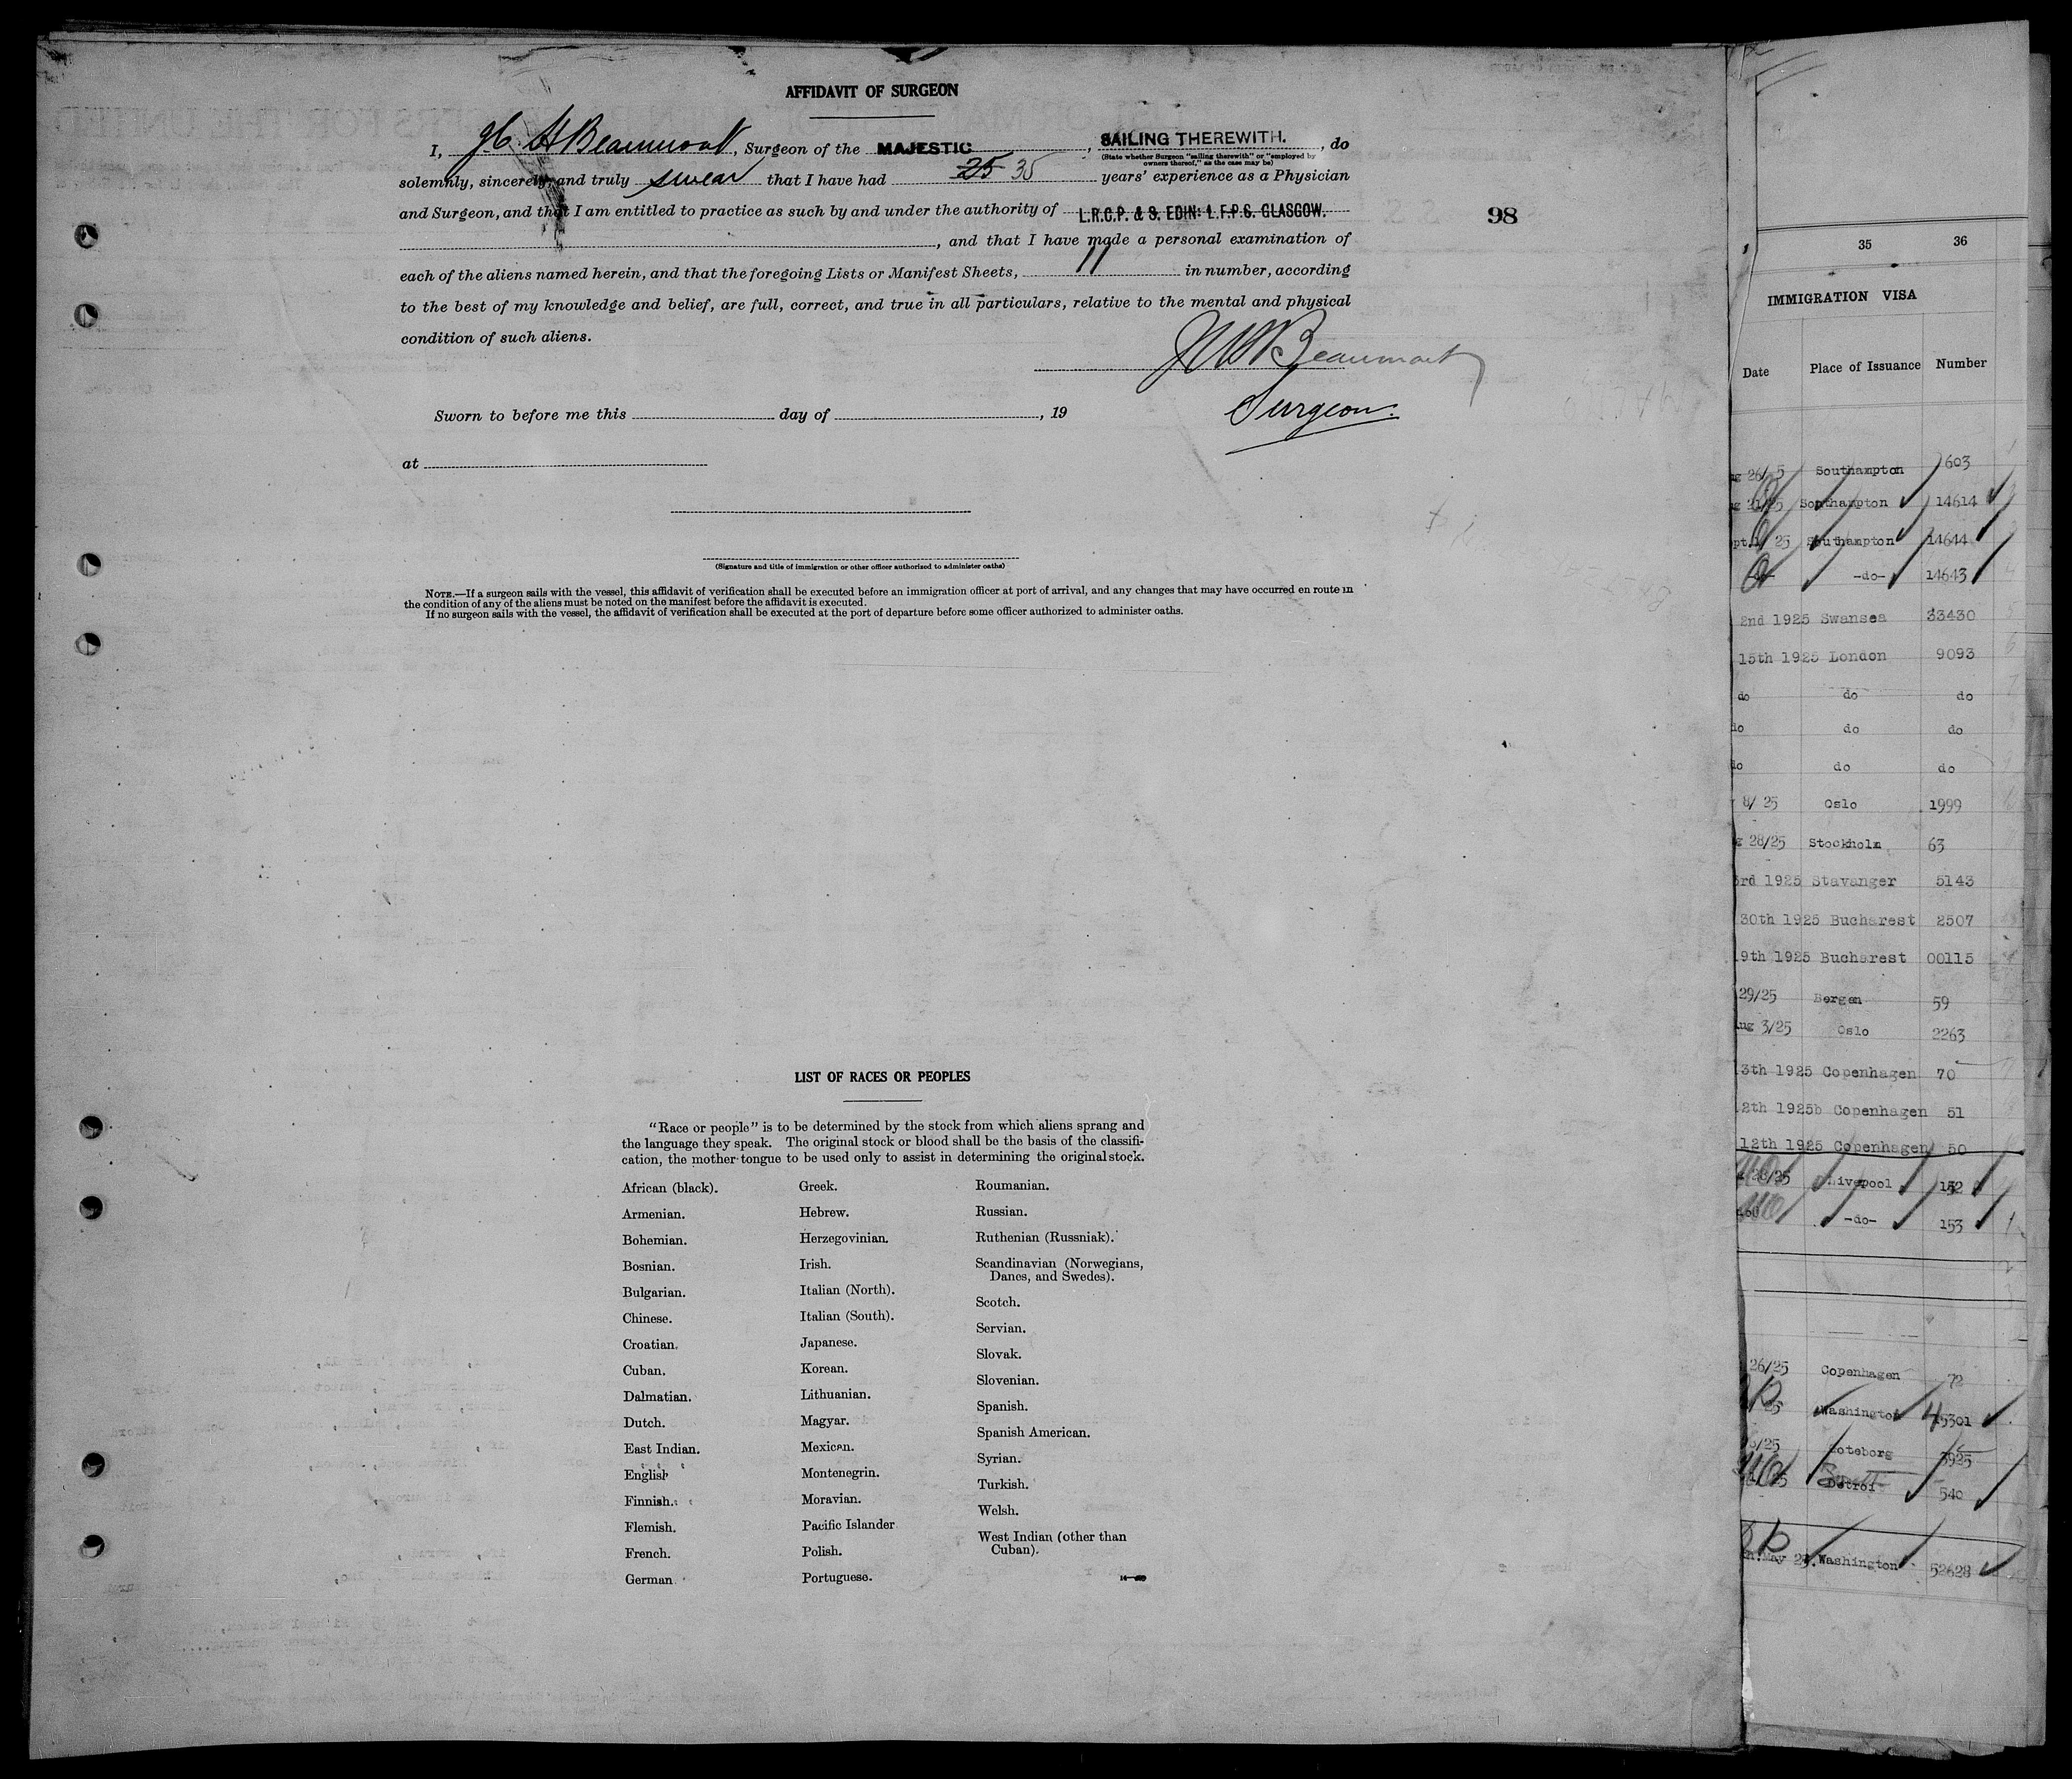 AFFIDAVIT OF SURGEON
I, H Beaumont, Surgeon of the MAJESTIC, SAILING THEREWITH., do
(State whether Surgeon "sailing therewith" or "employed by owners thereof," as the case may be)
solemnly, sincerely, and truly swear that I have had 25 35 years' experience as a Physician
and Surgeon, and that I am entitled to practice as such by and under the authority of L.R.C.P. & S. EDIN: L.F.P.S. GLASGOW.
, and that I have made a personal examination of
each of the aliens named herein, and that the foregoing Lists or Manifest Sheets, 11 in number, according
to the best of my knowledge and belief, are full, correct, and true in all particulars, relative to the mental and physical
condition of such aliens.
Beaumont
Surgeon.
Sworn to before me this day of , 19
at
(Signature and title of immigration or other officer authorized to administer oaths)
NOTE.—If a surgeon sails with the vessel, this affidavit of verification shall be executed before an immigration officer at port of arrival, and any changes that may have occurred en route in
the condition of any of the aliens must be noted on the manifest before the affidavit is executed.
If no surgeon sails with the vessel, the affidavit of verification shall be executed at the port of departure before some officer authorized to administer oaths.
98
LIST OF RACES OR PEOPLES
"Race or people" is to be determined by the stock from which aliens sprang and
the language they speak. The original stock or blood shall be the basis of the classifi-
cation, the mother tongue to be used only to assist in determining the original stock.
African (black).
Armenian.
Bohemian.
Bosnian.
Bulgarian.
Chinese.
Croatian.
Cuban.
Dalmatian.
Dutch.
East Indian.
English
Finnish.
Flemish.
French.
German
Greek.
Hebrew.
Herzegovinian.
Irish.
Italian (North).
Italian (South).
Japanese.
Korean.
Lithuanian.
Magyar.
Mexican.
Montenegrin.
Moravian.
Pacific Islander
Polish.
Portuguese.
Roumanian.
Russian.
Ruthenian (Russniak).
Scandinavian (Norwegians,
Danes, and Swedes).
Scotch.
Servian.
Slovak.
Slovenian.
Spanish.
Spanish American.
Syrian.
Turkish.
Welsh.
West Indian (other than
Cuban).
35 36
IMMIGRATION VISA
Date Place of Issuance Number
26/ 5 Southampton 603
21/25 Southampton 14614
25 Southampton 14644
-do- 14643
2nd 1925 Swansea 33430
15th 1925 London 9093
do do do
do do do
do do do
8/ 25 Oslo 1999
28/25 Stockholm 63
3rd 1925 Stavanger 5143
30th 1925 Bucharest 2507
9th 1925 Bucharest 00115
29/25 Bergen 59
ug 3/25 Oslo 2263
3th 1925 Copenhagen 70
2th 1925b Copenhagen 51
12th 1925 Copenhagen 50
28/25 Liverpool 152
-do- 153
26/25 Copenhagen 72
25 Washington 45301
/25 Goteborg 3925
25 Detroi 540
May 2 Washington 52628